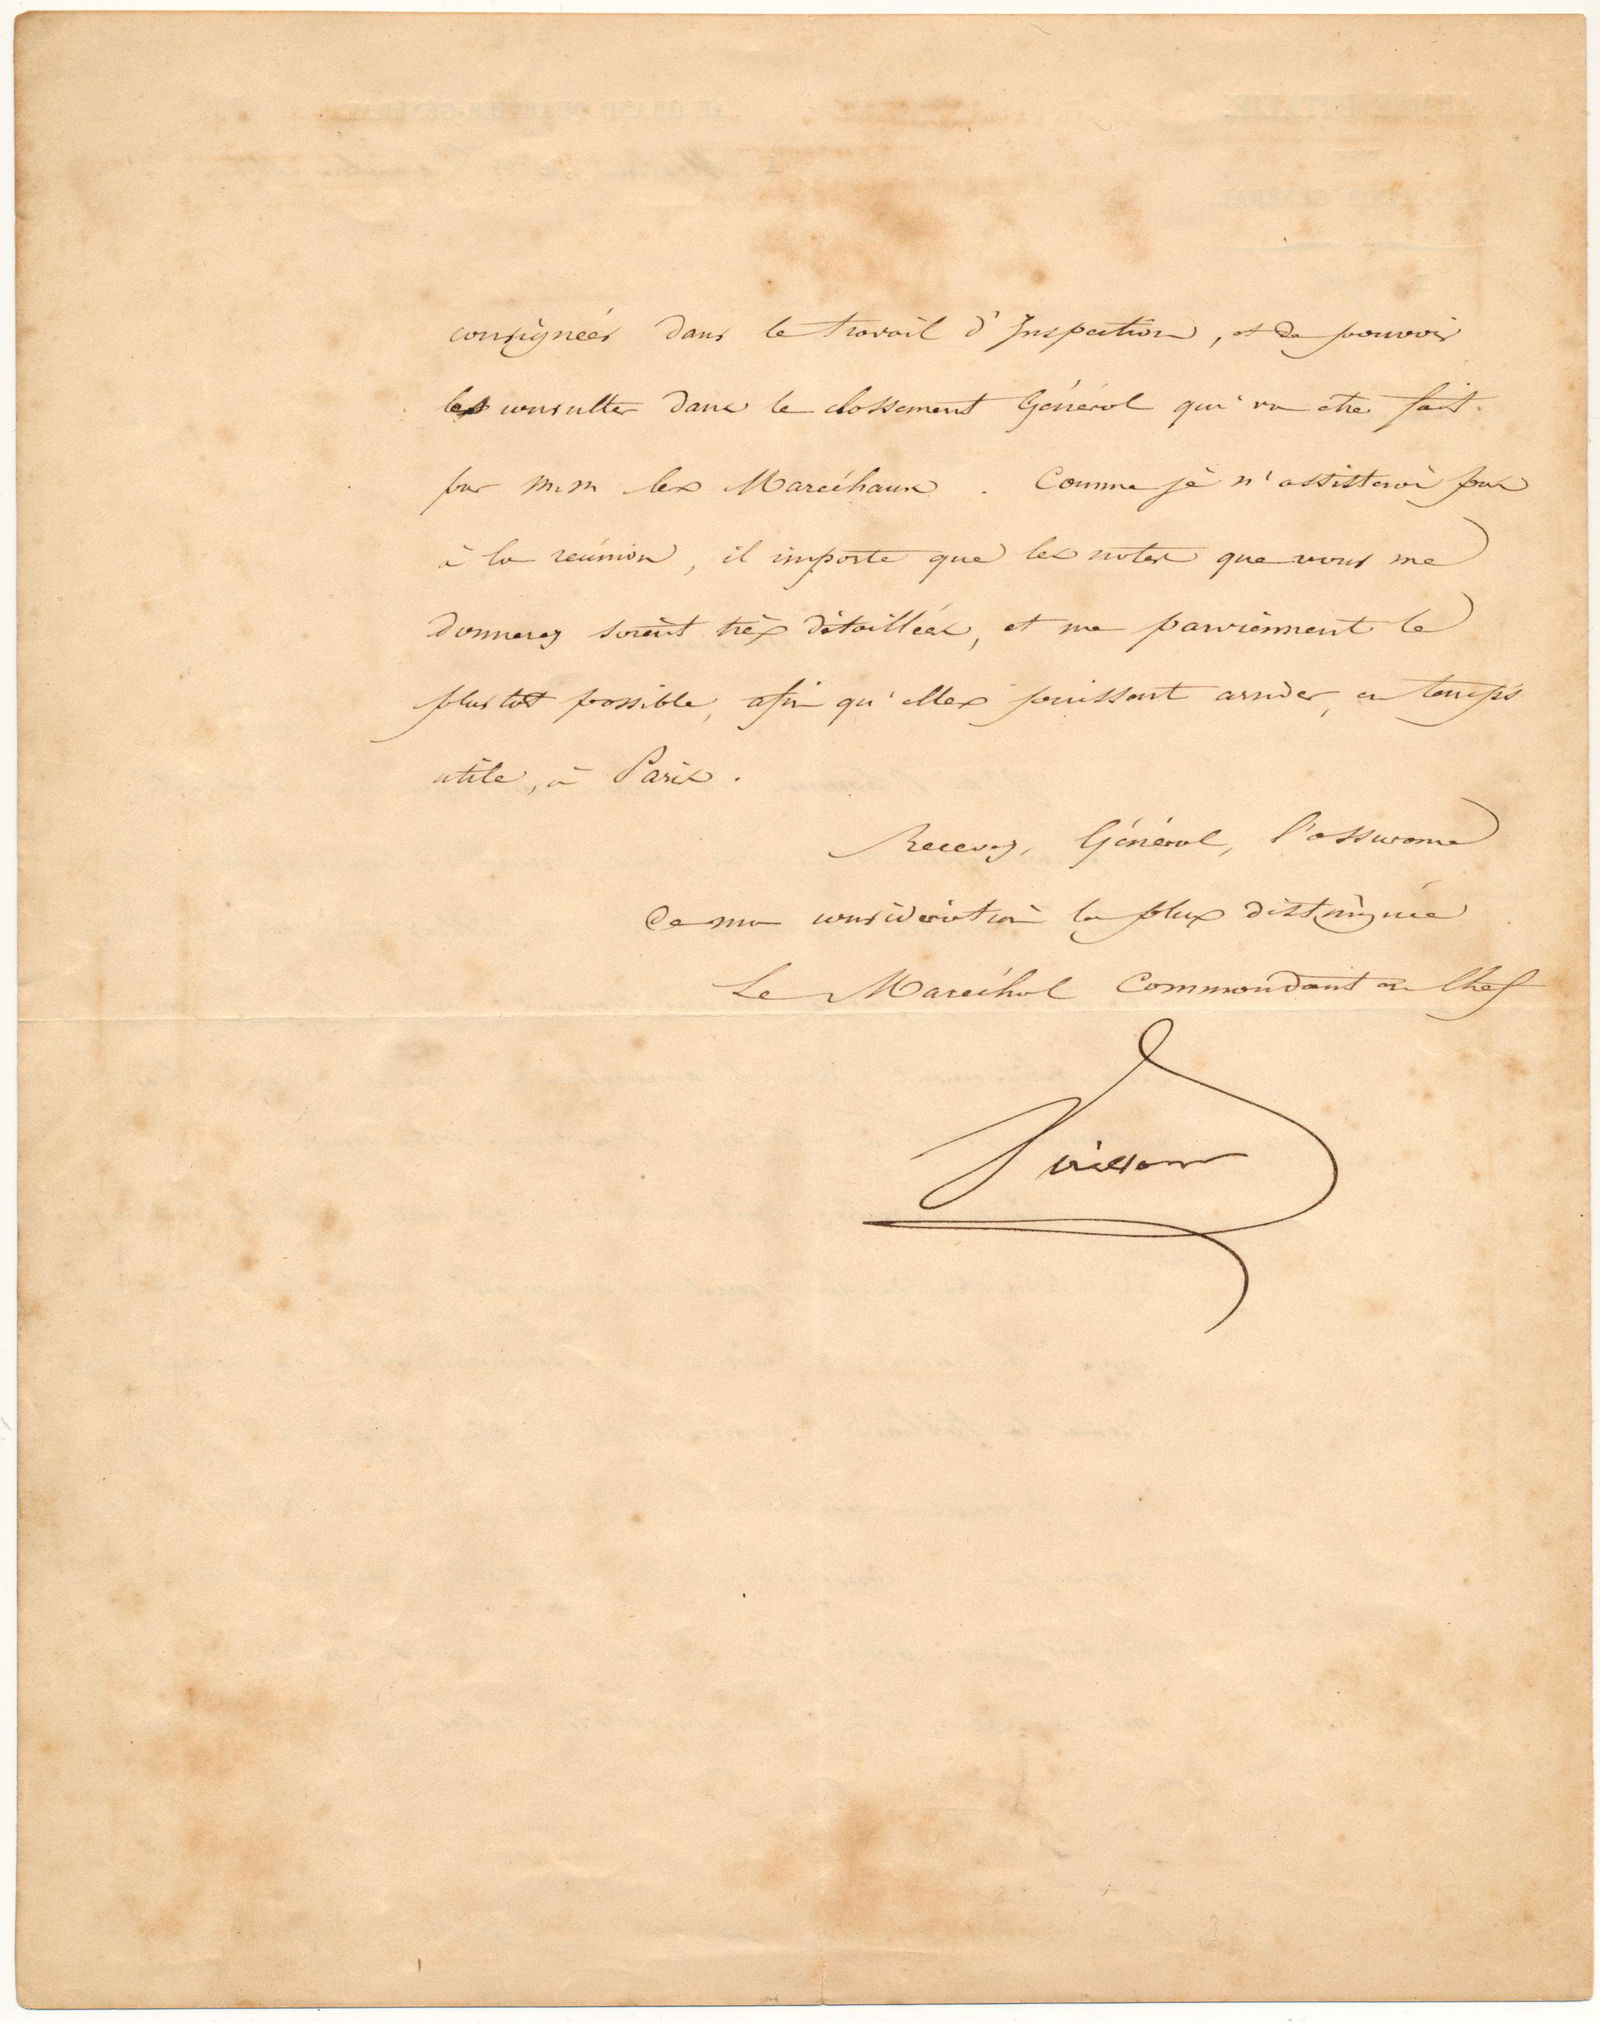 consignées dans le travail d'Inspection, et de pouvoir
les consulter dans le classement Général qui va être fait
par M.M les Maréchaux. Comme je n'assisterai pas
à la reúnion, il importe que les notes que vous me
donnerez soient très détaillées, et me parviennent le
plus tot possible, afin qu'elles puissent arriver, en temps
utile, à Paris.
Recevez, Général, l'assurance
de ma considération la plus distinguée
Le Maréchal Commandant en Chef
Vaillant